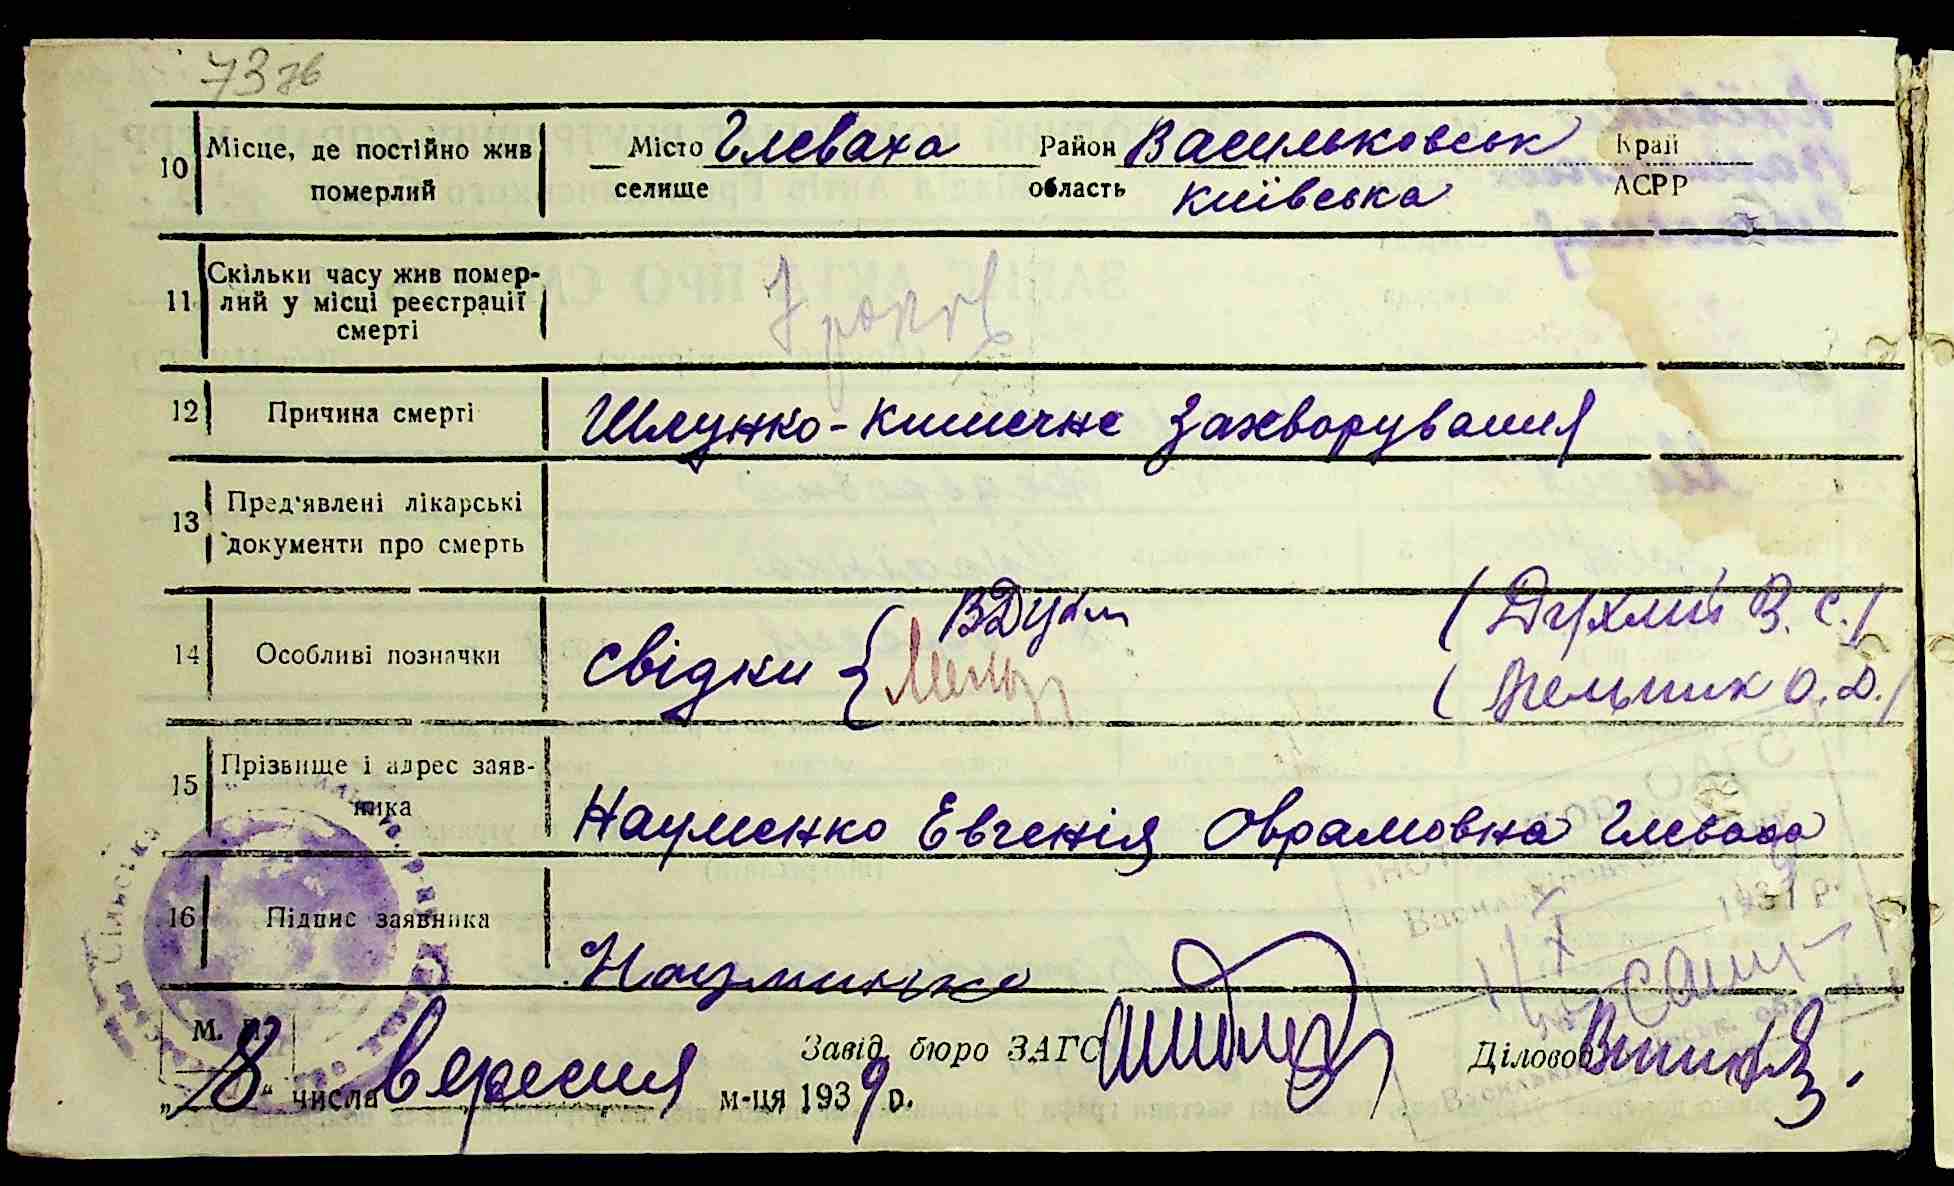 73 зв
10 Місце, де постійно жив померлий
Місто Глеваха Район Васильковськ Край
селище область Київська АСРР
11 Скільки часу жив померлий у місці реєстрації смерті
років
12 Причина смерті Шлунко-кишечне захворування
13 Пред'явлені лікарські документи про смерть
14 Особливі позначки свідки { (Духлий В. С.)
(Мельник О. Д.)
15 Прізвище і адрес заявника
Науменко Евгенія Оврамовна Глеваха
16 Підпис заявника
Науминько
М. П.
„8“ числа вересня м-ця 1939 р. Завід. бюро ЗАГС Діловод